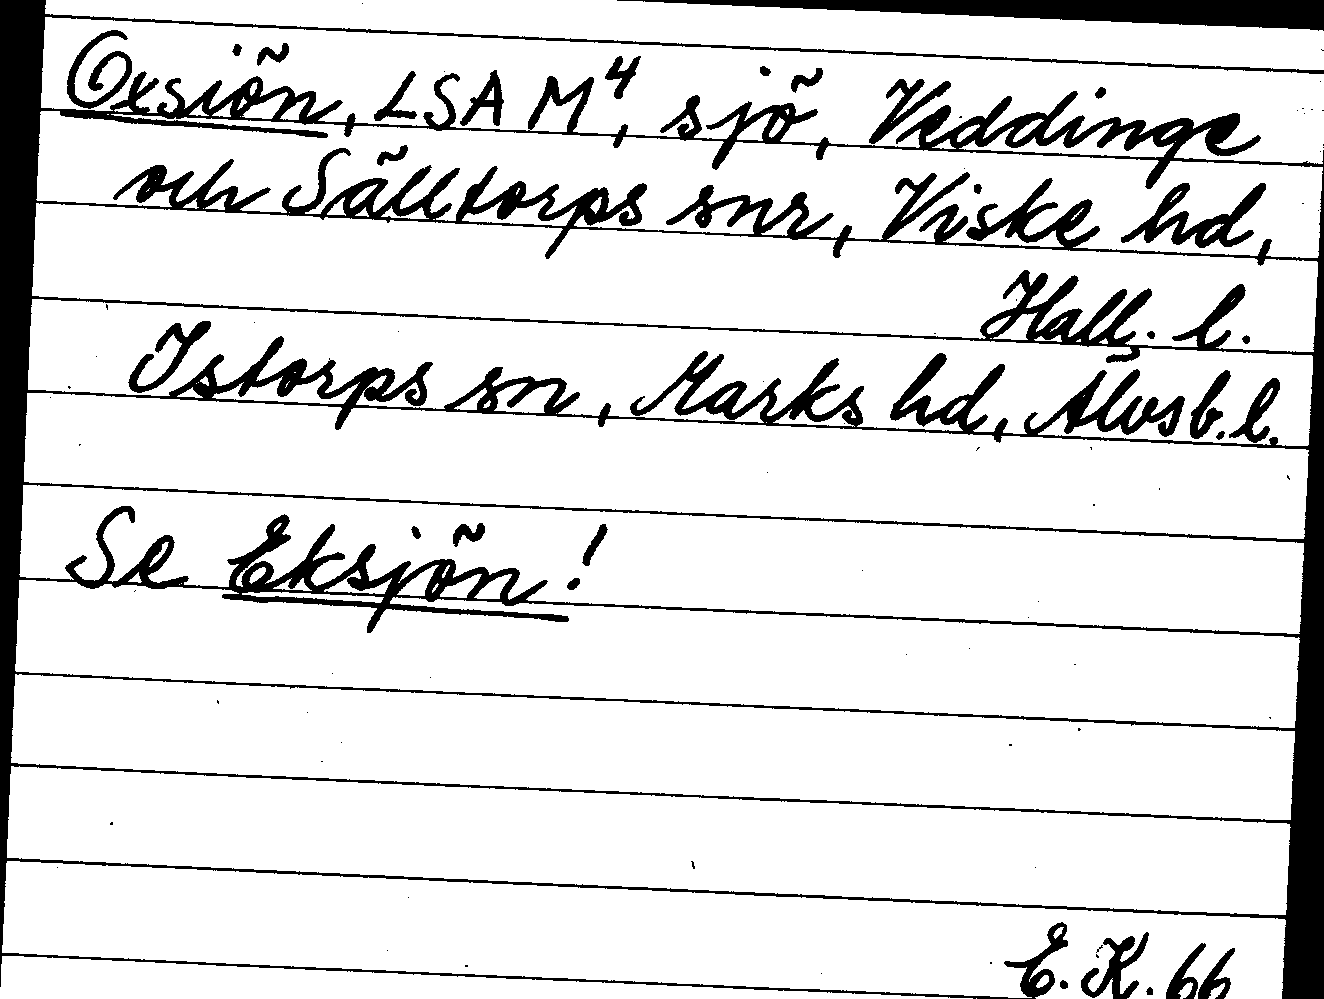 Oxsiön, LSA M⁴, sjö, Veddinge
och Sälltorps snr, Viske hd,
Hall. l.
Istorps sn, Marks hd, Älvsb. l.
Se Eksjön!
E. K. 66